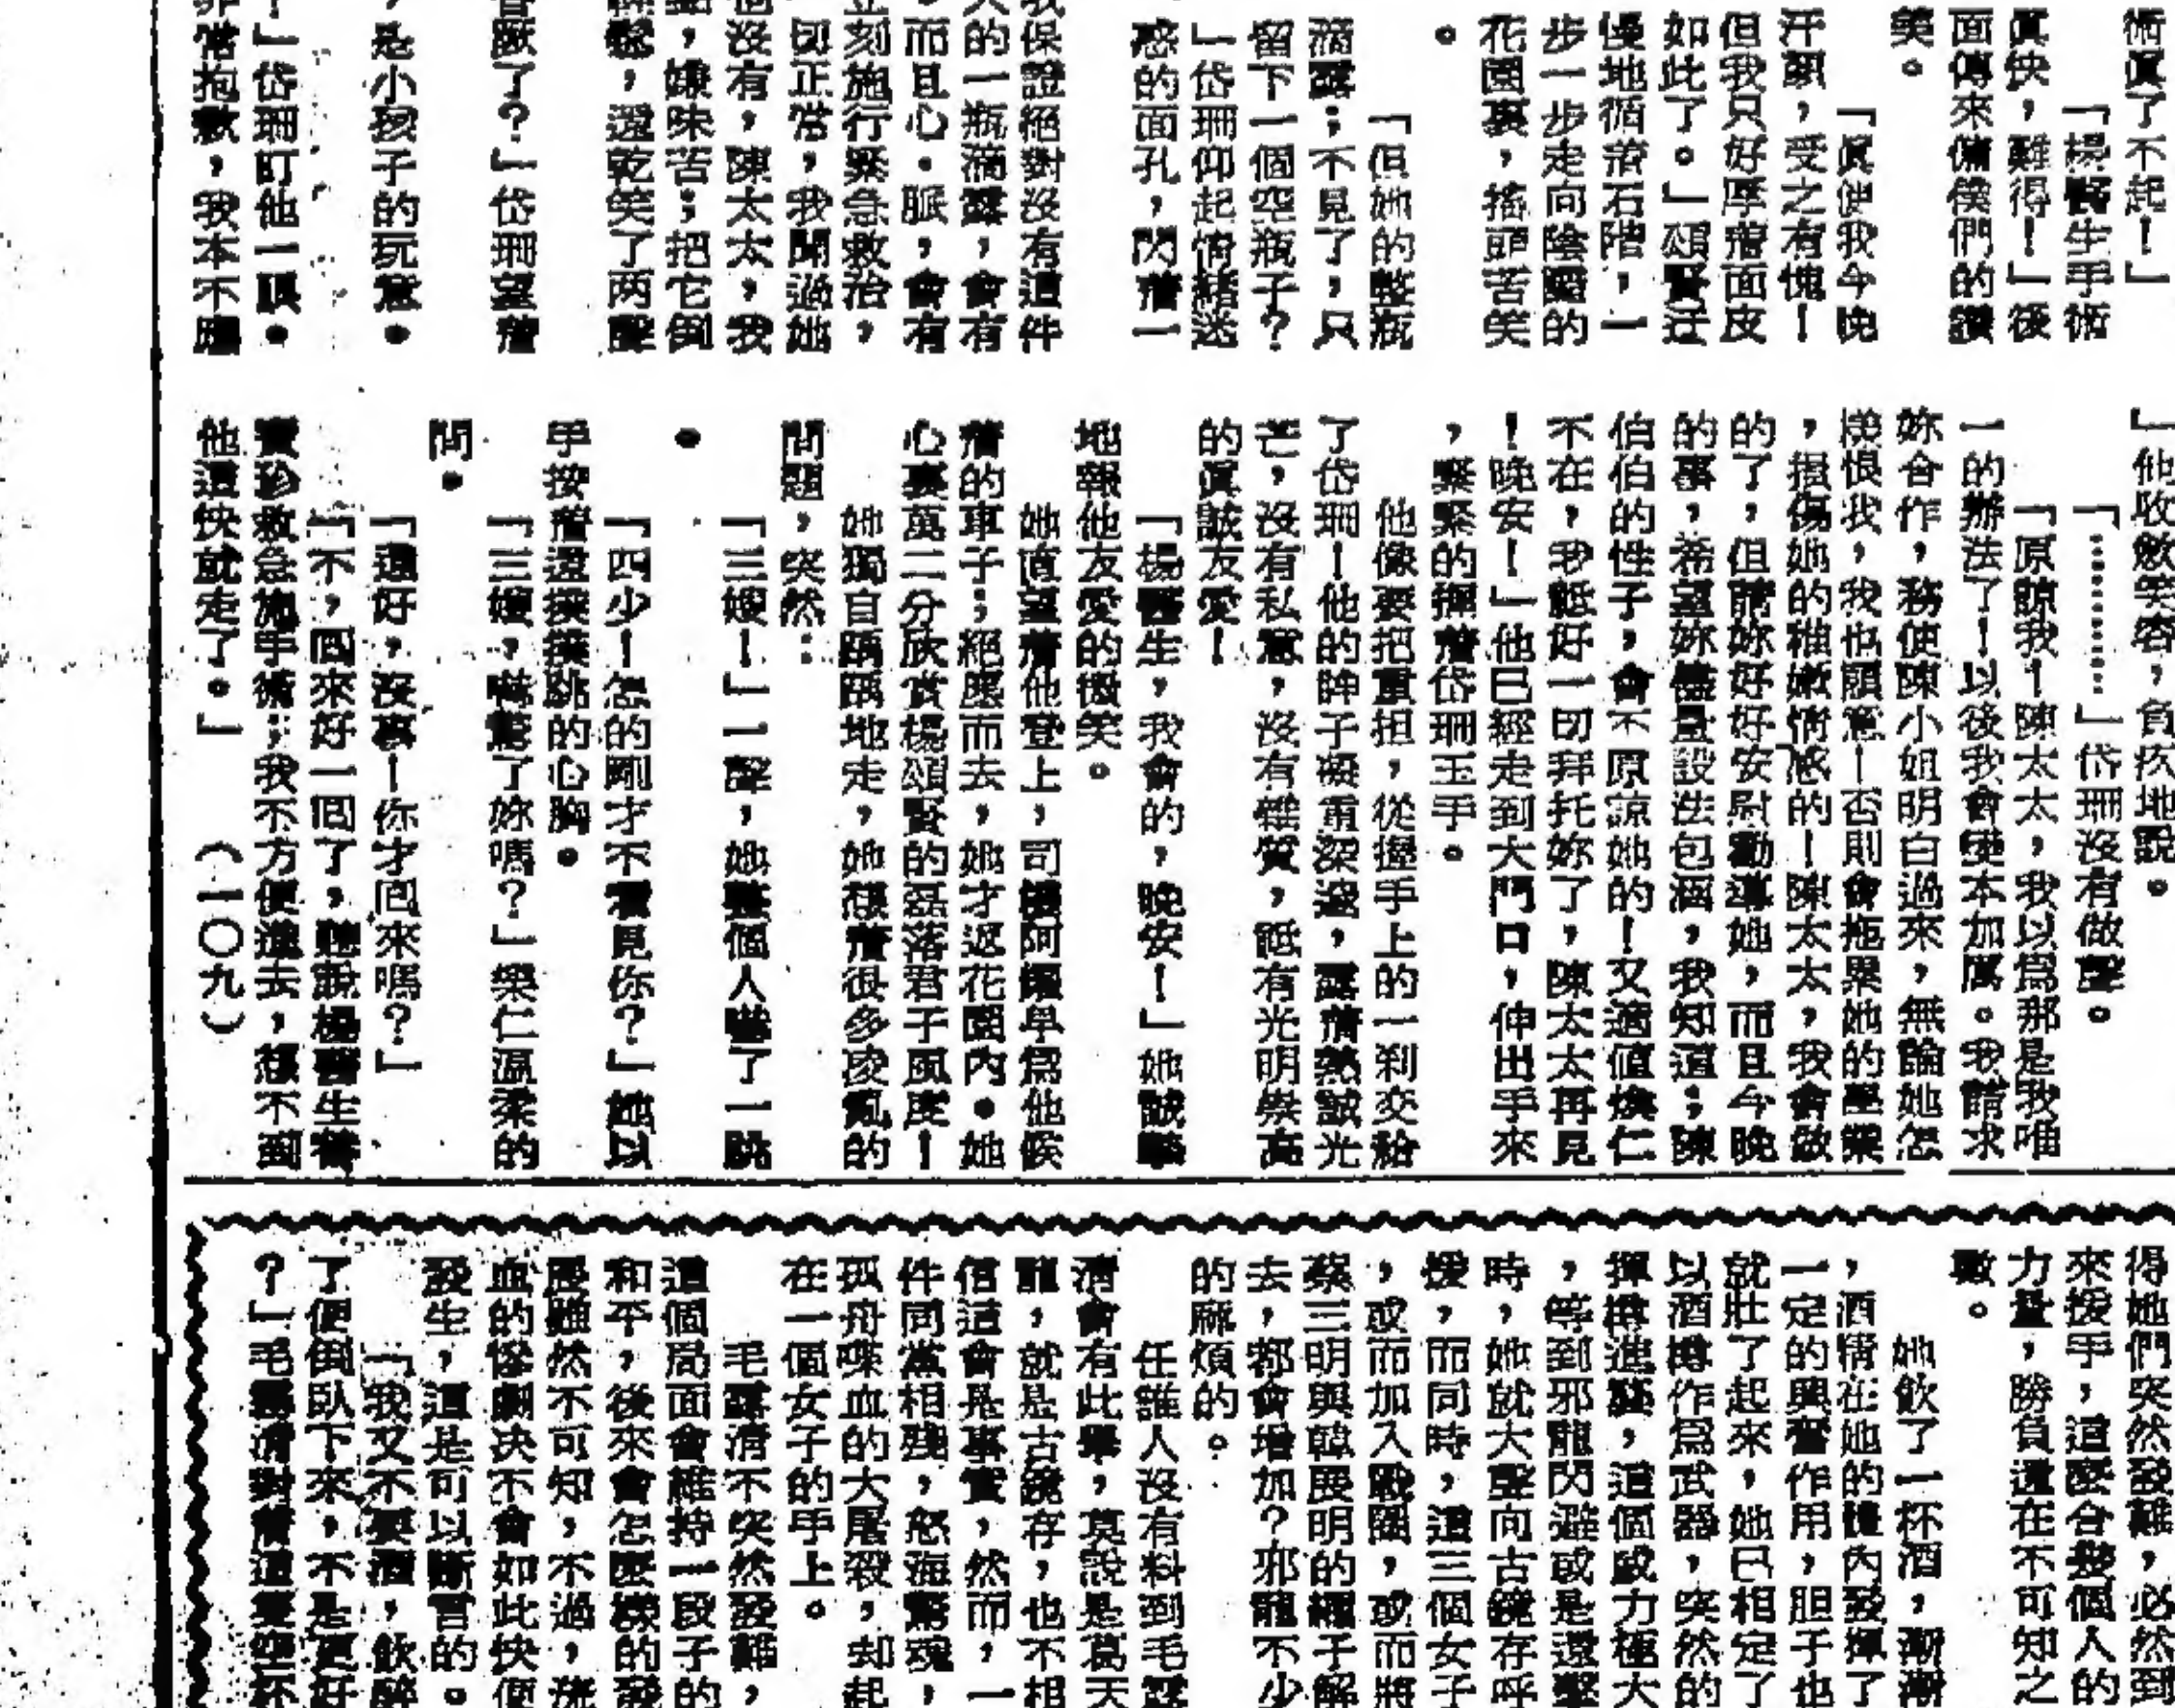 術眞了不起！」
「楊醫生手術
眞快，難得！」後
面傳來傭僕們的讚
美。
「眞使我今晚
汗顏，受之有愧！
但我只好厚着面皮
如此了。」頌賢迂
慢地循着石階，一
步一步走向陰霾的
花園裏，搖頭苦笑
。
「但她的整瓶
滴露；不見了，只
留下一個空瓶子？
」岱珊仰起情緒迷
惑的面孔，閃着一
我保證絕對沒有這件
大的一瓶滴露，會有
，而且心．脈，會有
立刻施行緊急救治，
切正常，我聞過她
他沒有，陳太太，我
點，嫌味苦；把它倒
，還乾笑了两聲
了？」岱珊望着
，是小孩子的玩意．
！」岱珊盯他一眼．
非常抱歉，我本不應
」他收歛笑容，負疚地說。
「………」岱珊沒有做聲。
「原諒我！陳太太，我以爲那是我唯
一的辦法了！以後我會變本加厲。我請求
妳合作，務使陳小姐明白過來，無論她怎
樣恨我，我也願意！否則會拖累她的學業
，損傷她的稚嫩情感的！陳太太，我會做
的了，但請妳好好安慰勸導她，而且今晚
的事，希望妳儘量設法包涵，我知道；陳
伯伯的性子，會不原諒她的！又適值煥仁
不在，我祗好一切拜托妳了，陳太太再見
！晚安！」他已經走到大門口，伸出手來
，緊緊的握着岱珊玉手。
他像要把重担，從握手上的一刹交給
了岱珊！他的眸子凝重深邃，露着熱誠光
芒，沒有私意，沒有雜質，祗有光明崇高
的眞誠友愛！
「楊醫生，我會的，晚安！」她誠摯
地報他友愛的微笑。
她直望着他登上，司機阿耀早爲他候
着的車子；絕塵而去，她才返花園內．她
心裏萬二分欣賞楊頌賢的磊落君子風度！
她獨自踽踽地走，她想着很多凌亂的
問題，突然：
「三嫂！」一聲，她整個人嚇了一跳
．
「四少！怎的剛才不看見你？」她以
手按着還撲撲跳的心胸．
「三嫂，嚇驚了妳嗎？」樂仁溫柔的
問．
「還好，沒事！你才回來嗎？」
「不，回來好一回了，聽說楊醫生替
寶珍救急施手術；我不方便進去，想不到
他這快就走了。」　（一〇九）
得她們突然發難，必然到
來援手，這麼合幾個人的
力量，勝負還在不可知之
數。
她飲了一杯酒，漸漸
，酒精在她的體內發揮了
一定的興奮作用，胆子也
就壯了起來，她已相定了
以酒樽作爲武器，突然的
揮樽進襲，這個威力極大
，等到邪龍閃避或是還擊
時，她就大聲向古鏡存呼
援，而同時，這三個女子
，或而加入戰團，或而將
蔡三明與韓展明的繩子解
去，都會增加？邪龍不少
的麻煩的。
任誰人沒有料到毛露
清會有此舉，莫說是葛天
龍，就是古鏡存，也不相
信這會是事實，然而，一
件同黨相殘，怒海驚魂，
孤舟喋血的大屠殺，却起
在一個女子的手上。
毛露清不突然發難，
這個局面會維持一段子的
和平，後來會怎麼樣的發
展雖然不可知，不過，流
血的慘劇决不會如此快便
發生，這是可以斷言的。
「我又不要酒，飲醉
了便倒臥下來，不是更好
？」毛露清對着這隻空杯